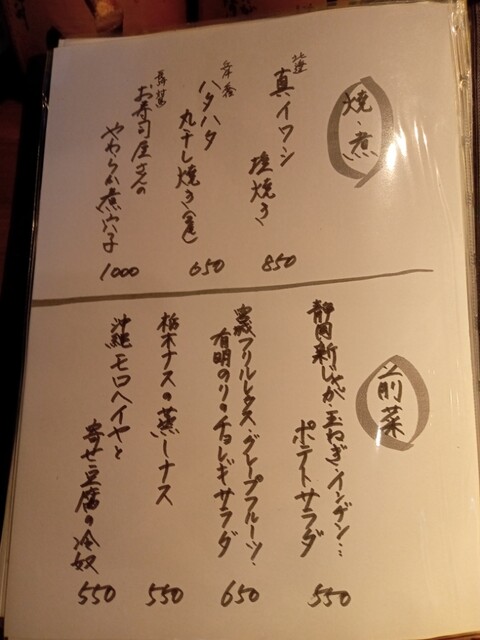 焼、煮
北海道
真イワシ
塩焼き
850
兵庫 香住
ハタハタ
丸干し焼き(3尾)
650
長崎 対馬
お寿司屋さんの
やわらか煮穴子
1000
前菜
静岡新じゃが、玉ねぎ、インゲン…
ポテトサラダ
550
宮城フリルレタス、グレープフルーツ、
有明のりのチョレギサラダ
650
栃木ナスの蒸しナス
550
沖縄モロヘイヤと
寄せ豆腐の冷奴
550